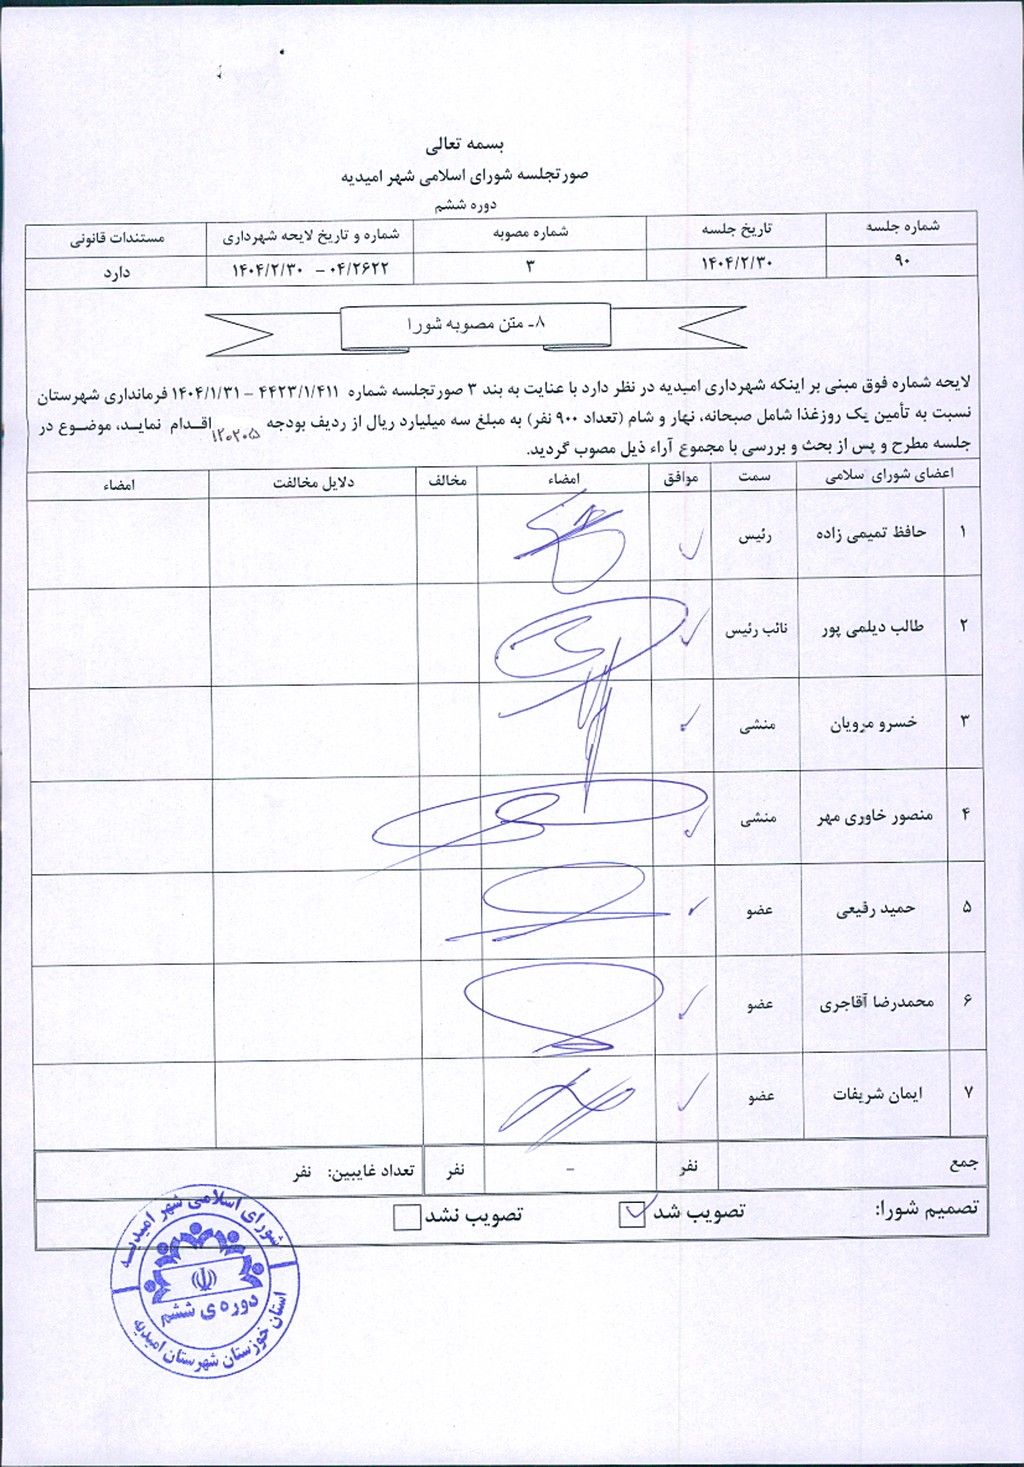 بسمه تعالی
صورتجلسه شورای اسلامی شهر امیدیه
دوره ششم
شماره جلسه تاریخ جلسه شماره مصوبه شماره و تاریخ لایحه شهرداری مستندات قانونی
۹۰ ۱۴۰۴/۲/۳۰ ۳ ۰۴/۲۶۲۲ – ۱۴۰۴/۲/۳۰ دارد
۸ـ متن مصوبه شورا
لایحه شماره فوق مبنی بر اینکه شهرداری امیدیه در نظر دارد با عنایت به بند ۳ صورتجلسه شماره ۴۴۲۳/۱/۴۱۱ – ۱۴۰۴/۱/۳۱ فرمانداری شهرستان
نسبت به تأمین یک روزغذا شامل صبحانه، نهار و شام (تعداد ۹۰۰ نفر) به مبلغ سه میلیارد ریال از ردیف بودجه ۱۲۰۲۰۵ اقدام نماید، موضوع در
جلسه مطرح و پس از بحث و بررسی با مجموع آراء ذیل مصوب گردید.
اعضای شورای سلامی سمت موافق امضاء مخالف دلایل مخالفت امضاء
۱ حافظ تمیمی زاده رئیس
۲ طالب دیلمی پور نائب رئیس
۳ خسرو مرویان منشی
۴ منصور خاوری مهر منشی
۵ حمید رفیعی عضو
۶ محمدرضا آقاجری عضو
۷ ایمان شریفات عضو
جمع نفر – نفر تعداد غایبین: نفر
تصمیم شورا: تصویب شد تصویب نشد
شورای اسلامی شهر امیدیه
دوره ی ششم
استان خوزستان شهرستان امیدیه